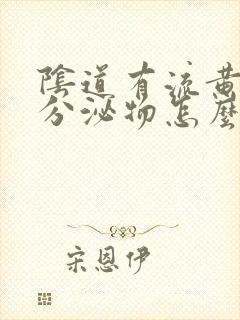 陰道有流黃
分泌物怎麼
宋恩伊